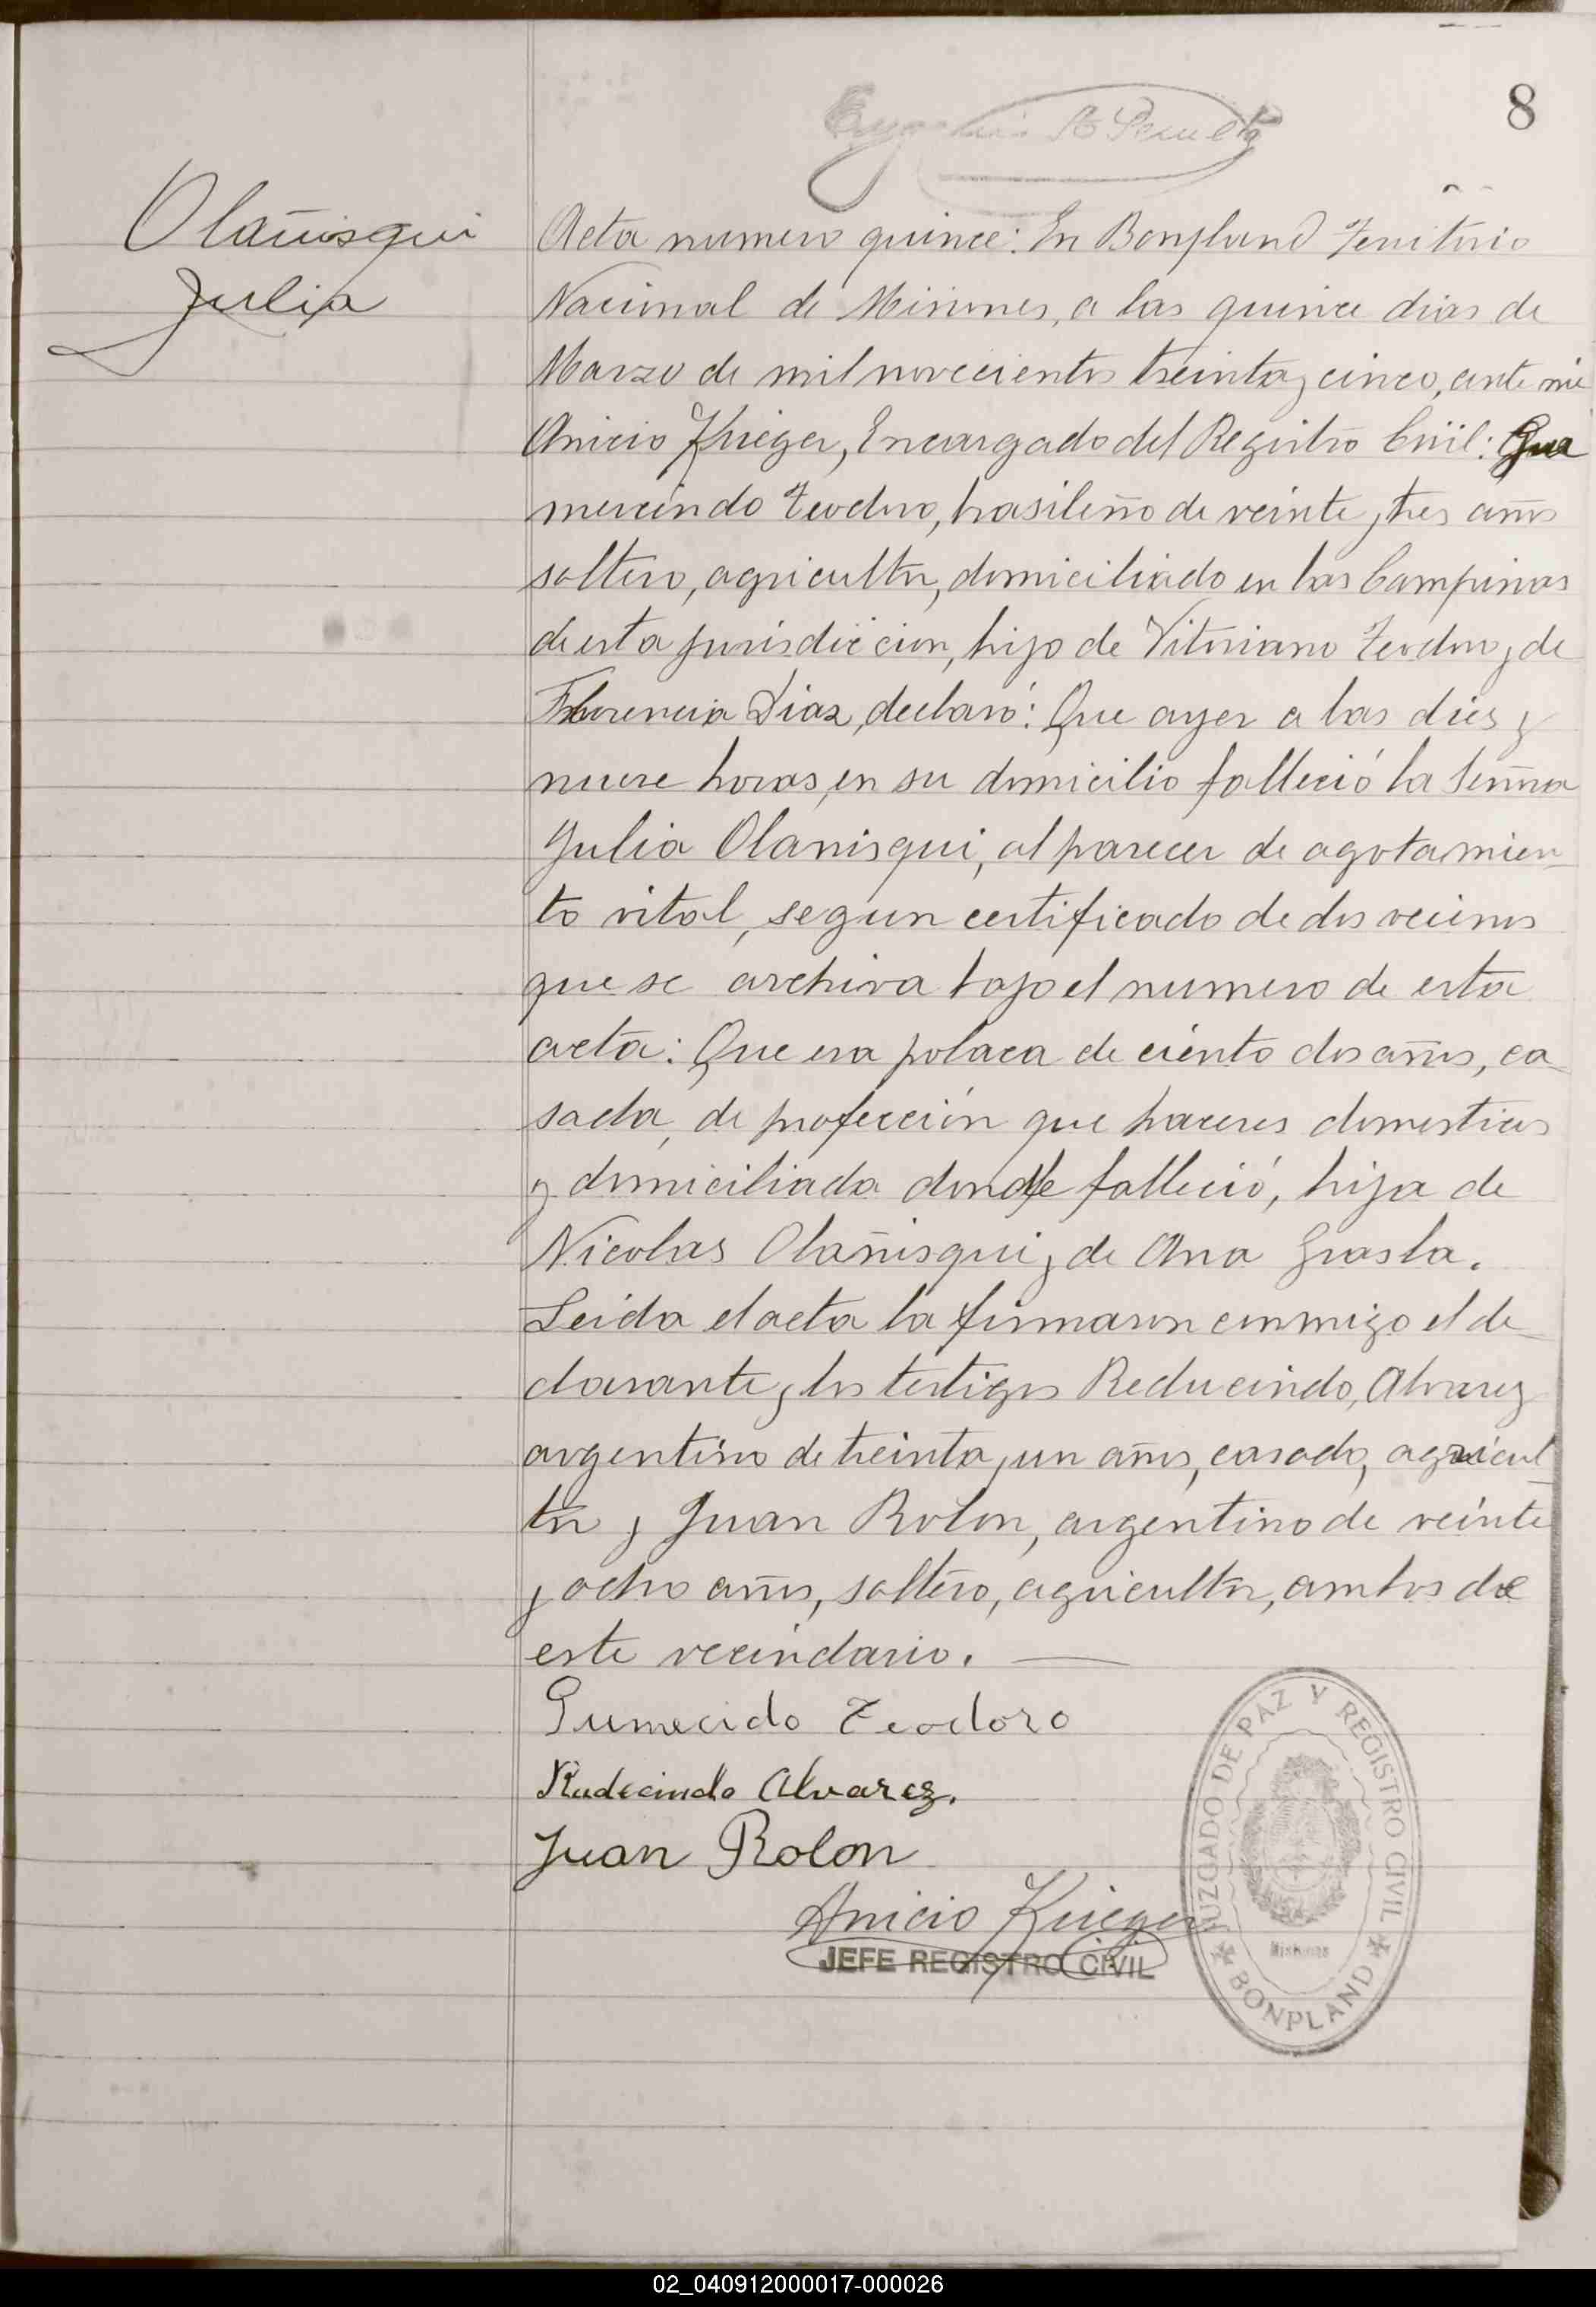 8
Olañisqui
Julia
Acta numero quince: En Bonpland Territorio
Nacional de Misiones, a los quince dias de
Marzo de mil novecientos treinta y cinco, ante mi
Anicio Krieger, Encargado del Registro Civil: Gua
mercindo Teodoro, brasileño de veinte y tres años
soltero, agricultor, domiciliado en las Campinas
de esta jurisdiccion, hijo de Vitoriano Teodoro y de
Florencia Diaz, declaró: Que ayer a las dies y
nueve horas, en su domicilio falleció la Señora
Julia Olanisqui, al parecer de agotamien-
to vital, segun certificado de dos vecinos
que se archiva bajo el numero de esta
acta: Que era polaca de ciento dos años, ca-
sada, de profección que haceres domesticos
y domiciliada donde falleció, hija de
Nicolas Olañisqui y de Ana Grasla.
Leida el acta la firmaron conmigo el de-
clarante y los testigos Reducindo, Alvarez
argentino de treinta y un años, casado, agricul-
tor y Juan Rolon, argentino de veinte
y ocho años, soltero, agricultor, ambos de
este vecindario.
Gumecido Teodoro
Rudecindo Alvarez.
Juan Rolon
Anicio Krieger
JEFE REGISTRO CIVIL
JUZGADO DE PAZ Y REGISTRO CIVIL
Misiones
BONPLAND
02_040912000017-000026